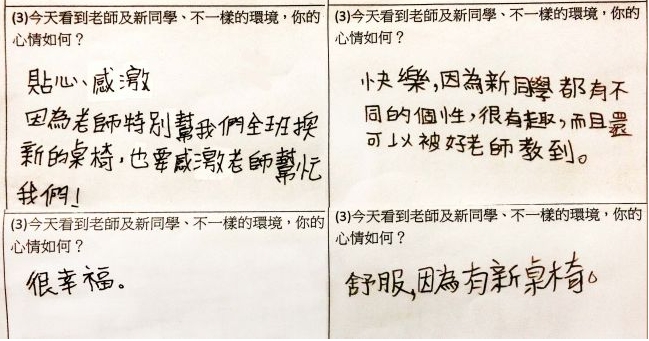 (3)今天看到老師及新同學、不一樣的環境，你的
心情如何？
貼心、感激
因為老師特別幫我們全班換
新的桌椅，也要感激老師幫忙
我們！
(3)今天看到老師及新同學、不一樣的環境，你的
心情如何？
快樂，因為新同學都有不
同的個性，很有趣，而且還
可以被好老師教到。
(3)今天看到老師及新同學、不一樣的環境，你的
心情如何？
很幸福。
(3)今天看到老師及新同學、不一樣的環境，你的
心情如何？
舒服，因為有新桌椅。